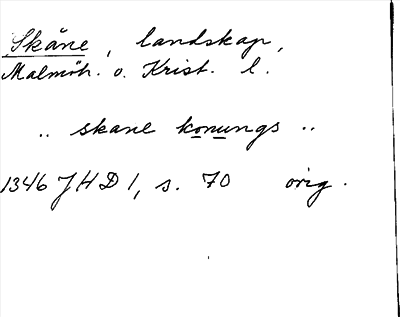 Skåne, landskap,
Malmöh. o. Krist. l.
.. skane konungs ..
1346 JHD 1, s. 70 orig.